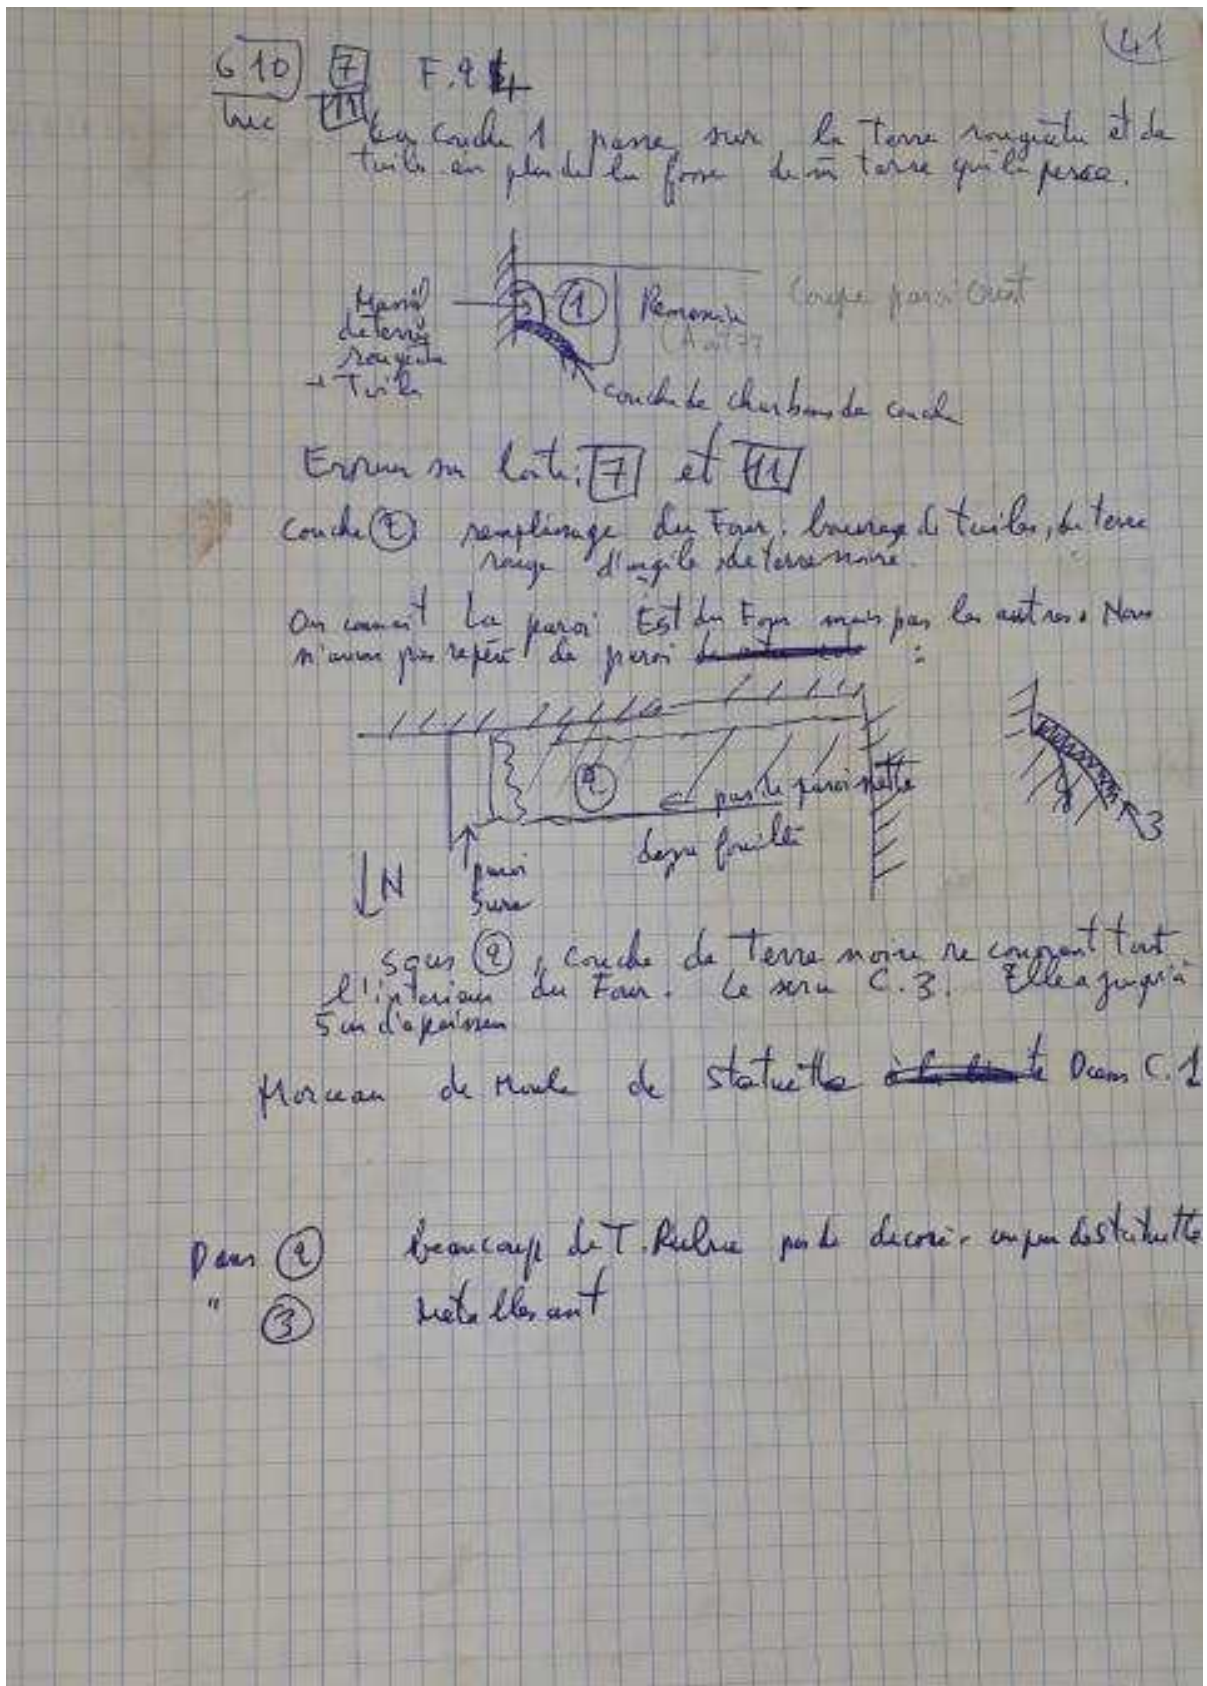 41
610 7 F.24
11
La Couche 1 passe sur la terre rougeâtre et de
tuile en plus de la fosse de terre qui la perce.
Massif
de terre
rougeâtre
+ Tuile
1
Remanié
Coupe paroi Ouest
couche de charbons de couche
Erreur sur l'orte: 7 et 11
Couche 2 remplissage du Four. bourrage de tuiles, de terre
rouge d'argile de terre noire.
On connait La paroi Est du Four mais pas les autres. Nous
n'avons pas repéré de paroi :
2
pas de paroi nette
deja fouillé
N
paroi
sure
3
sous 2, couche de Terre noire recouvrant tout
l'interieur du Four. Ce sera C.3. Elle a jusqu'à
5 cm d'epaisseur
Morceau de Moule de statuette Dans C.1
Dans 2 beaucoup de T. pas de decoré. un peu de statuette
" 3 metallescent